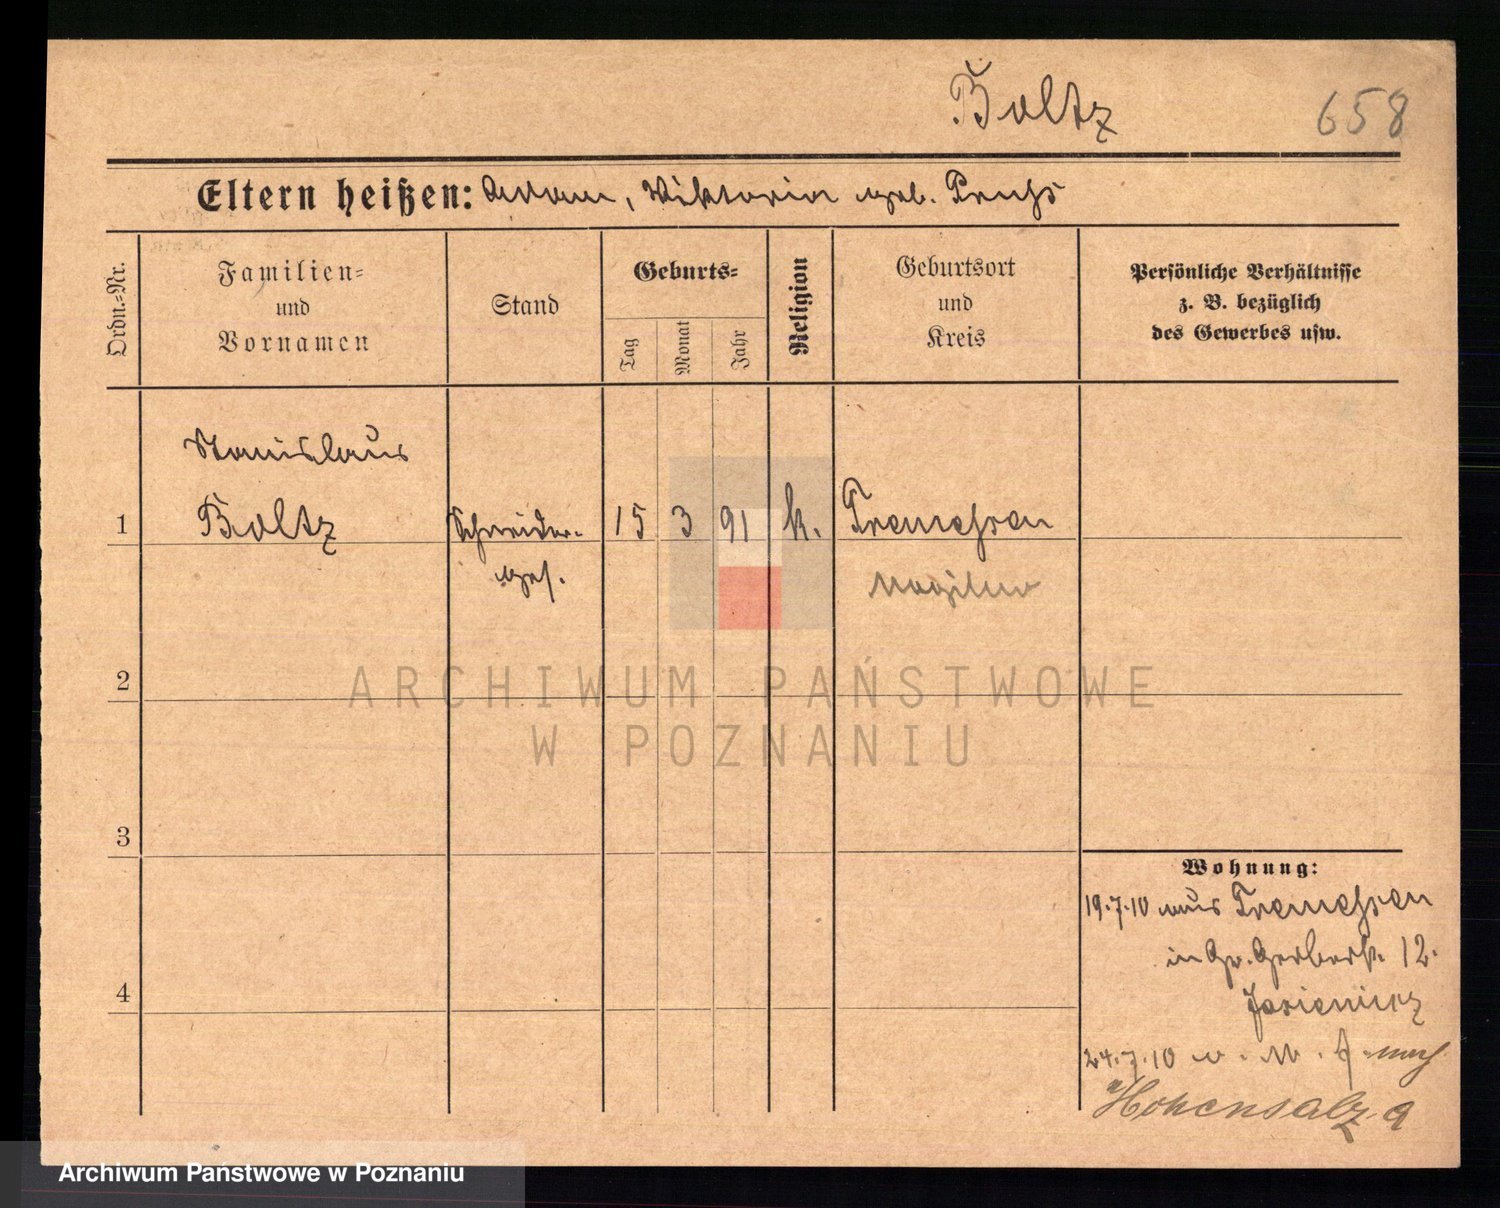 Boltz
658
Eltern heißen: Adam, Viktoria geb.
Ordn.-Nr.
Familien-
und
Vornamen
Stand
Geburts-
Tag
Monat
Jahr
Religion
Geburtsort
und
Kreis
Persönliche Verhältnisse
z. B. bezüglich
des Gewerbes usw.
Stanislaus
1 Boltz Schneider- 15 3 91 k. Tremessen
ges. Mogilno
2
ARCHIWUM PAŃSTWOWE
W POZNANIU
3
Wohnung:
19.7.10 aus Tremessen
in Gr. Gerberst. 12.
4
24.7.10 nach
Hohensalza
Archiwum Państwowe w Poznaniu